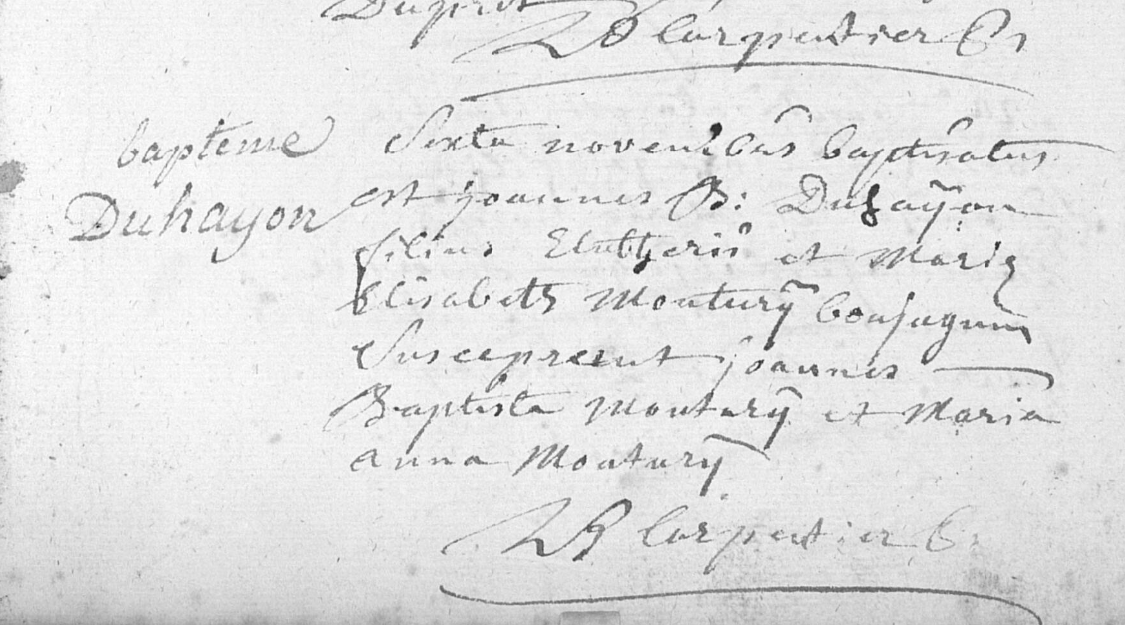 Duprix
B Carpentier C
bapteme
Duhayon
Sexta novembris baptisatus
est joannes B: Duhayon
filius Eleutherii et Mariæ
Elisabeth Moutury Conjugum
Susceperunt joannes
Baptista Moutury et Maria
anna Moutury
B Carpentier C